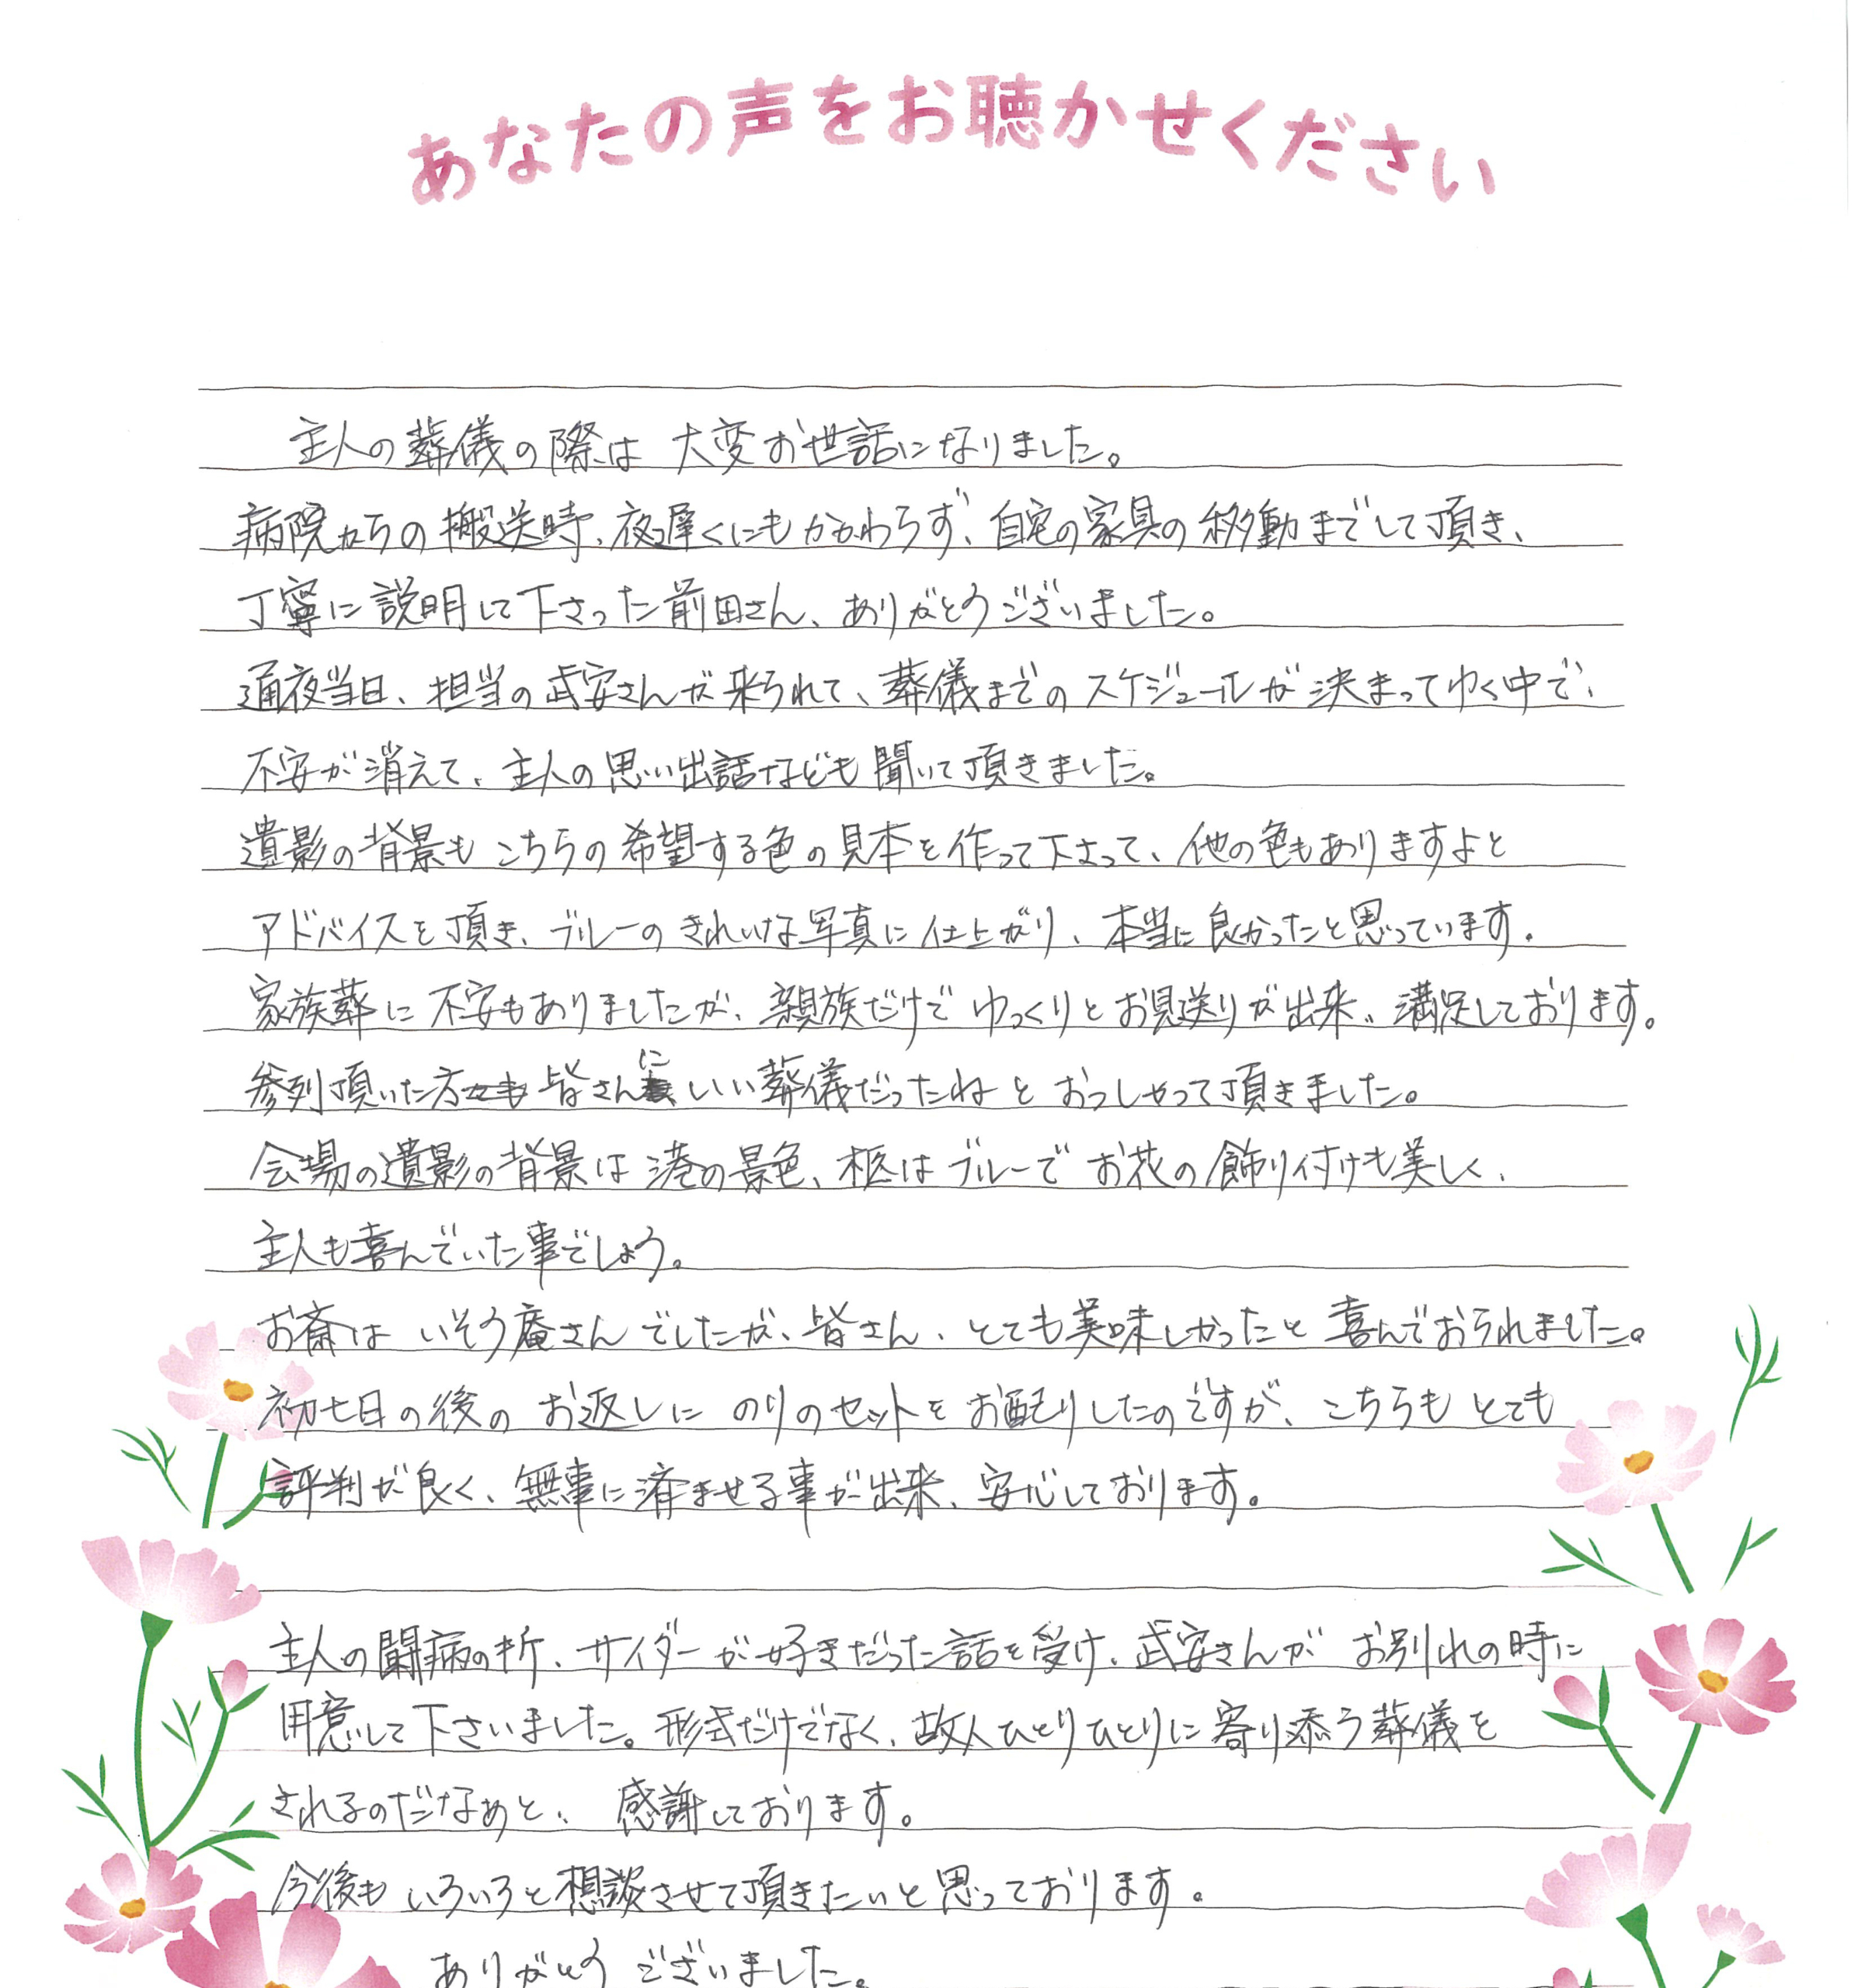 あなたの声をお聴かせください
主人の葬儀の際は 大変お世話になりました。
病院からの搬送時、夜遅くにもかかわらず、自宅の家具の移動までして頂き、
丁寧に説明して下さった前田さん、ありがとうございました。
通夜当日、担当の武安さんが来られて、葬儀までのスケジュールが決まってゆく中で、
不安が消えて、主人の思い出話なども聞いて頂きました。
遺影の背景も こちらの希望する色の見本を作って下さって、他の色もありますよと
アドバイスを頂き、ブルーの きれいな写真に仕上がり、本当に良かったと思っています。
家族葬に不安もありましたが、親族だけで ゆっくりとお見送りが出来、満足しております。
参列頂いた方 皆さんに いい葬儀だったねと おっしゃって頂きました。
会場の遺影の背景は 港の景色、柩は ブルーで お花の飾り付けも美しく、
主人も喜んでいた事でしょう。
お斎は いそう庵さんでしたが、皆さん、とても美味しかったと 喜んでおられました。
初七日の後の お返しに のりのセットを お配りしたのですが、こちらも とても
評判が良く、無事に済ませる事が出来、安心しております。
主人の闘病の折、サイダーが好きだった話を受け、武安さんが お別れの時に
用意して下さいました。形式だけでなく、故人ひとりひとりに寄り添う葬儀を
されるのだなぁと、 感謝しております。
今後も いろいろと想談させて頂きたいと思っております。
ありがとう ございました。